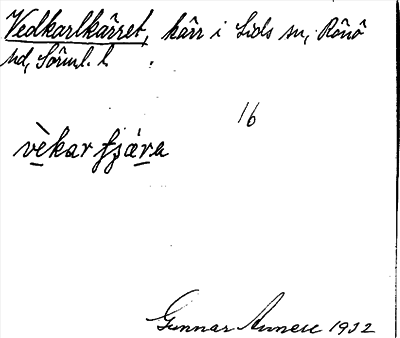 Vedkarlkärret, kärr i Lids sn, Rönö
hd, Sörml. l.
16
vèkar fjára
Gunnar 1932